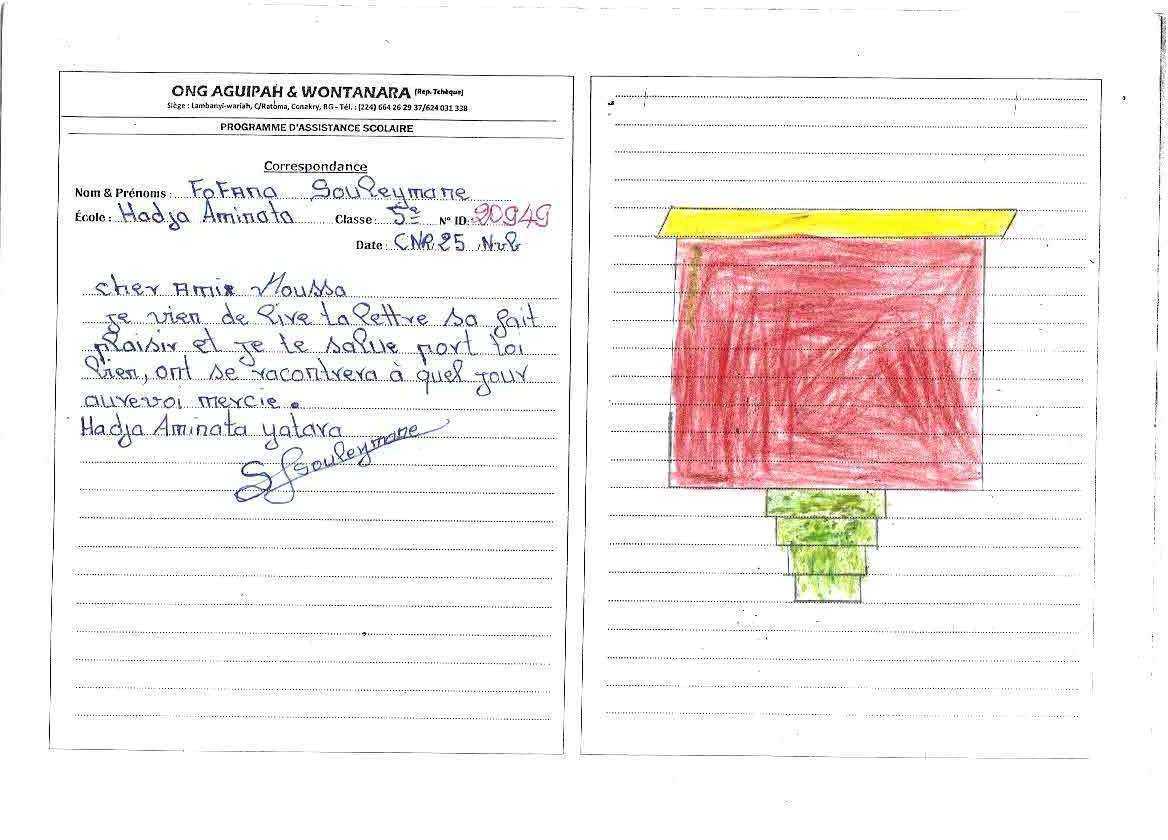 ONG AGUIPAH & WONTANARA (Rep. Tchèque)
Siège : Lambanyi-wariah, C/Ratoma, Conakry, RG - Tél. : (224) 664 26 29 37/624 031 338
PROGRAMME D'ASSISTANCE SCOLAIRE
Correspondance
Nom & Prénoms : FoFana Souleymane
École : Hadja Aminata Classe : 5è N° ID: 20949
Date : 25
cher Amis Moussa
je vien de lire ta lettre sa fait
plaisir et je te salue port toi
bien, ont se racontrera à quel jour
aurevoi mercie.
Hadja Aminata yatara
Souleymane